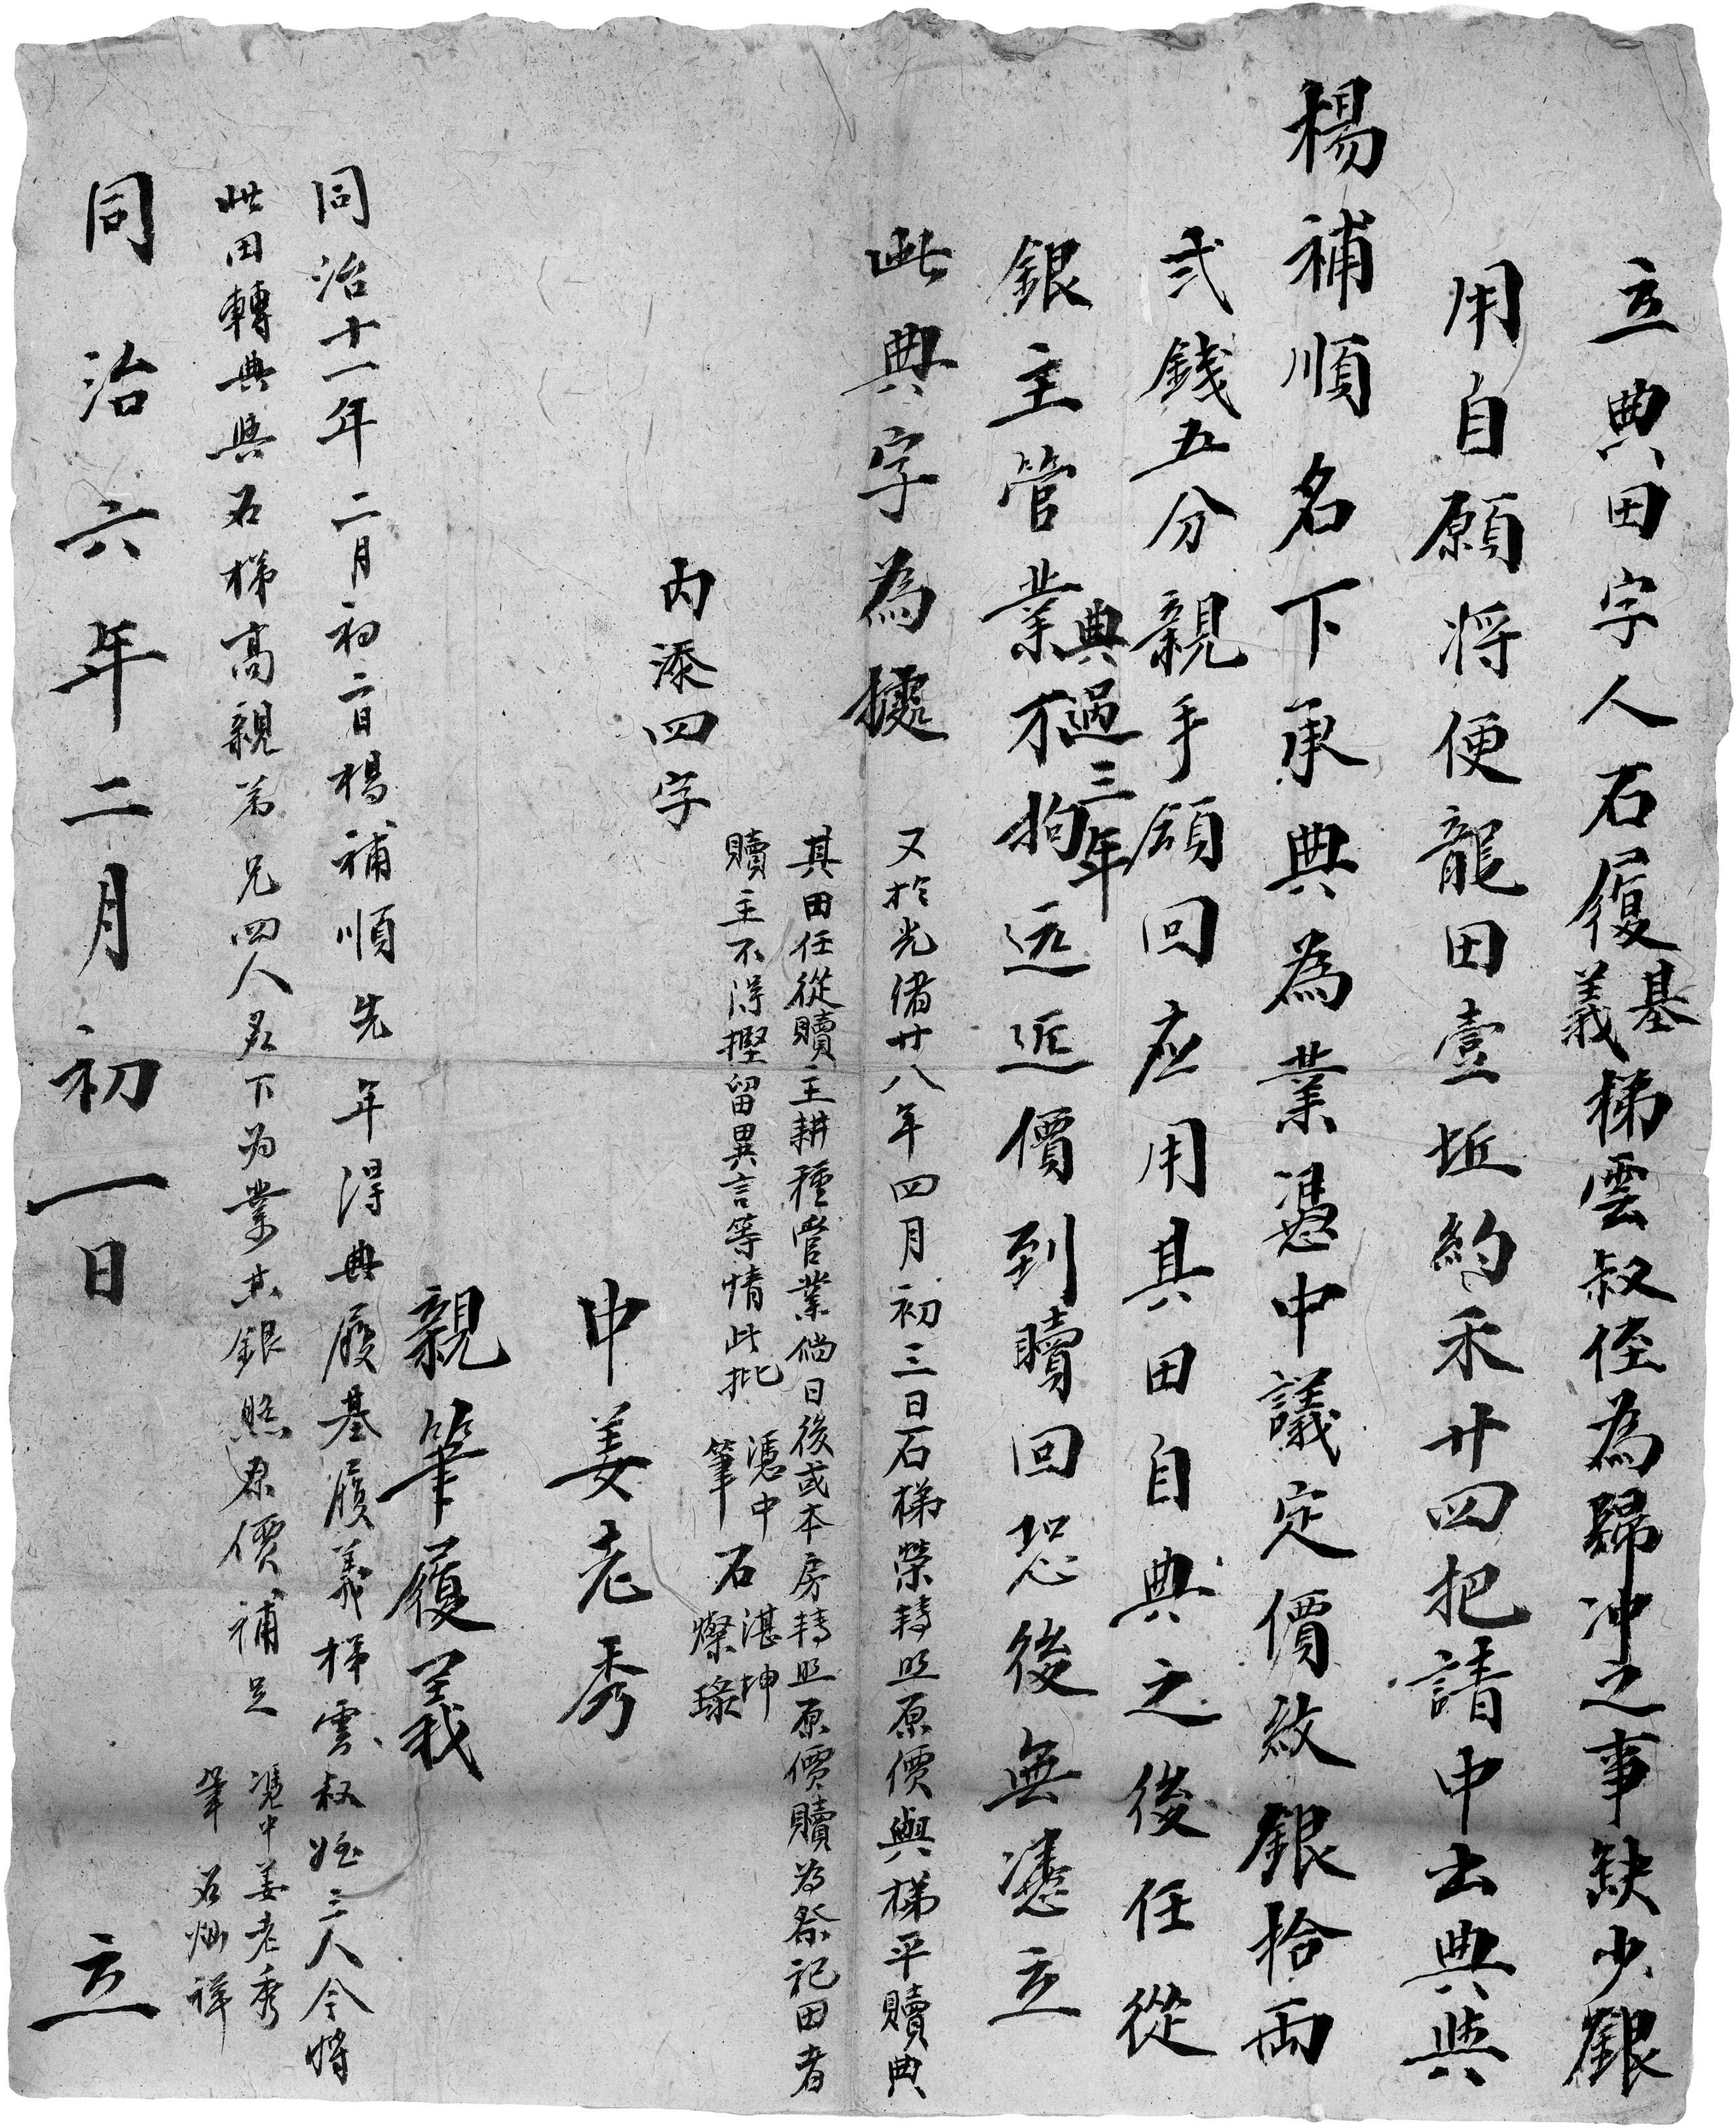 立典田字人石履基義梯雲叔侄為歸冲之事缺少銀
用自願将便龍田壹坵約禾廿四把請中出典與
楊補順名下承典為業憑中議定價紋銀拾両
弍錢五分親手領回应用其田自典之後任從
典過三年
銀主管業不拘远近價到贖回恐後無憑立
此典字為據
又於光緒廿八年四月初三日石梯榮轉照原價與梯平贖典
其田任從贖主耕種管業倘日後或本房轉照原價贖為祭祀田者
贖主不得慳留異言等情此批
憑中 石湛坤
筆 燦璪
内添四字
中姜老秀
親筆履義
同治十一年二月初二日楊補順先年得典履基履義梯雲叔姪三人今將
此田轉典與石梯高親弟兄四人名下為業其銀照原價補足
憑中姜老秀
筆 石燦祥
同治六年二月初一日 立